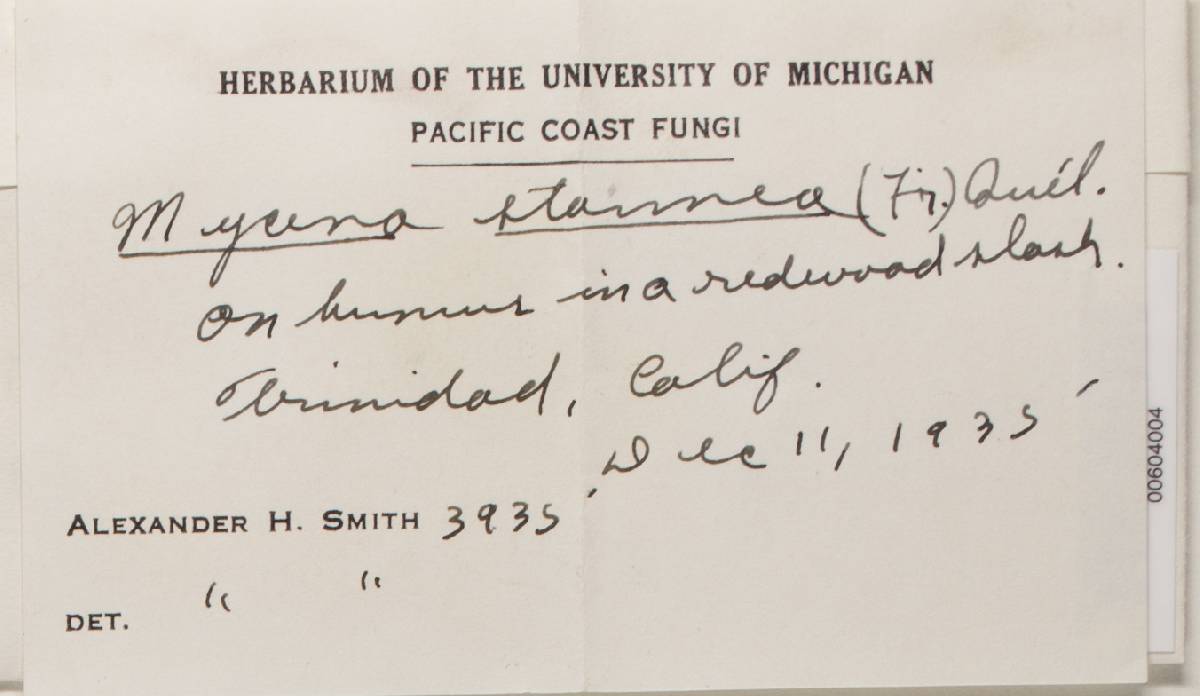 HERBARIUM OF THE UNIVERSITY OF MICHIGAN
PACIFIC COAST FUNGI
Mycena stannea (Fr.) Quél.
on humus in a redwood slash.
Trinidad, Calif.
Dec 11, 1935
ALEXANDER H. SMITH 3935
DET. " "
00604004